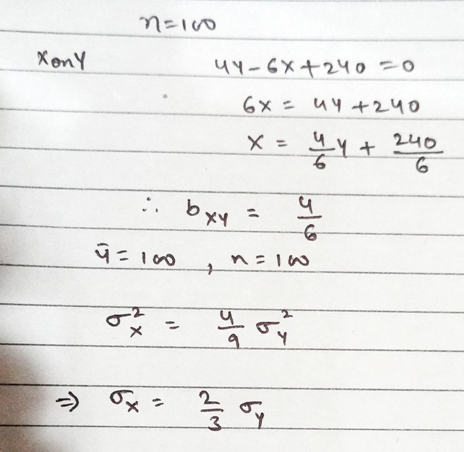 n=100
X on Y 4Y-6X+240=0
6X = 4Y+240
X = 4/6 Y + 240/6
∴ b_XY = 4/6
ȳ = 100 , n=100
σ_X^2 = 4/9 σ_Y^2
⇒ σ_X = 2/3 σ_Y